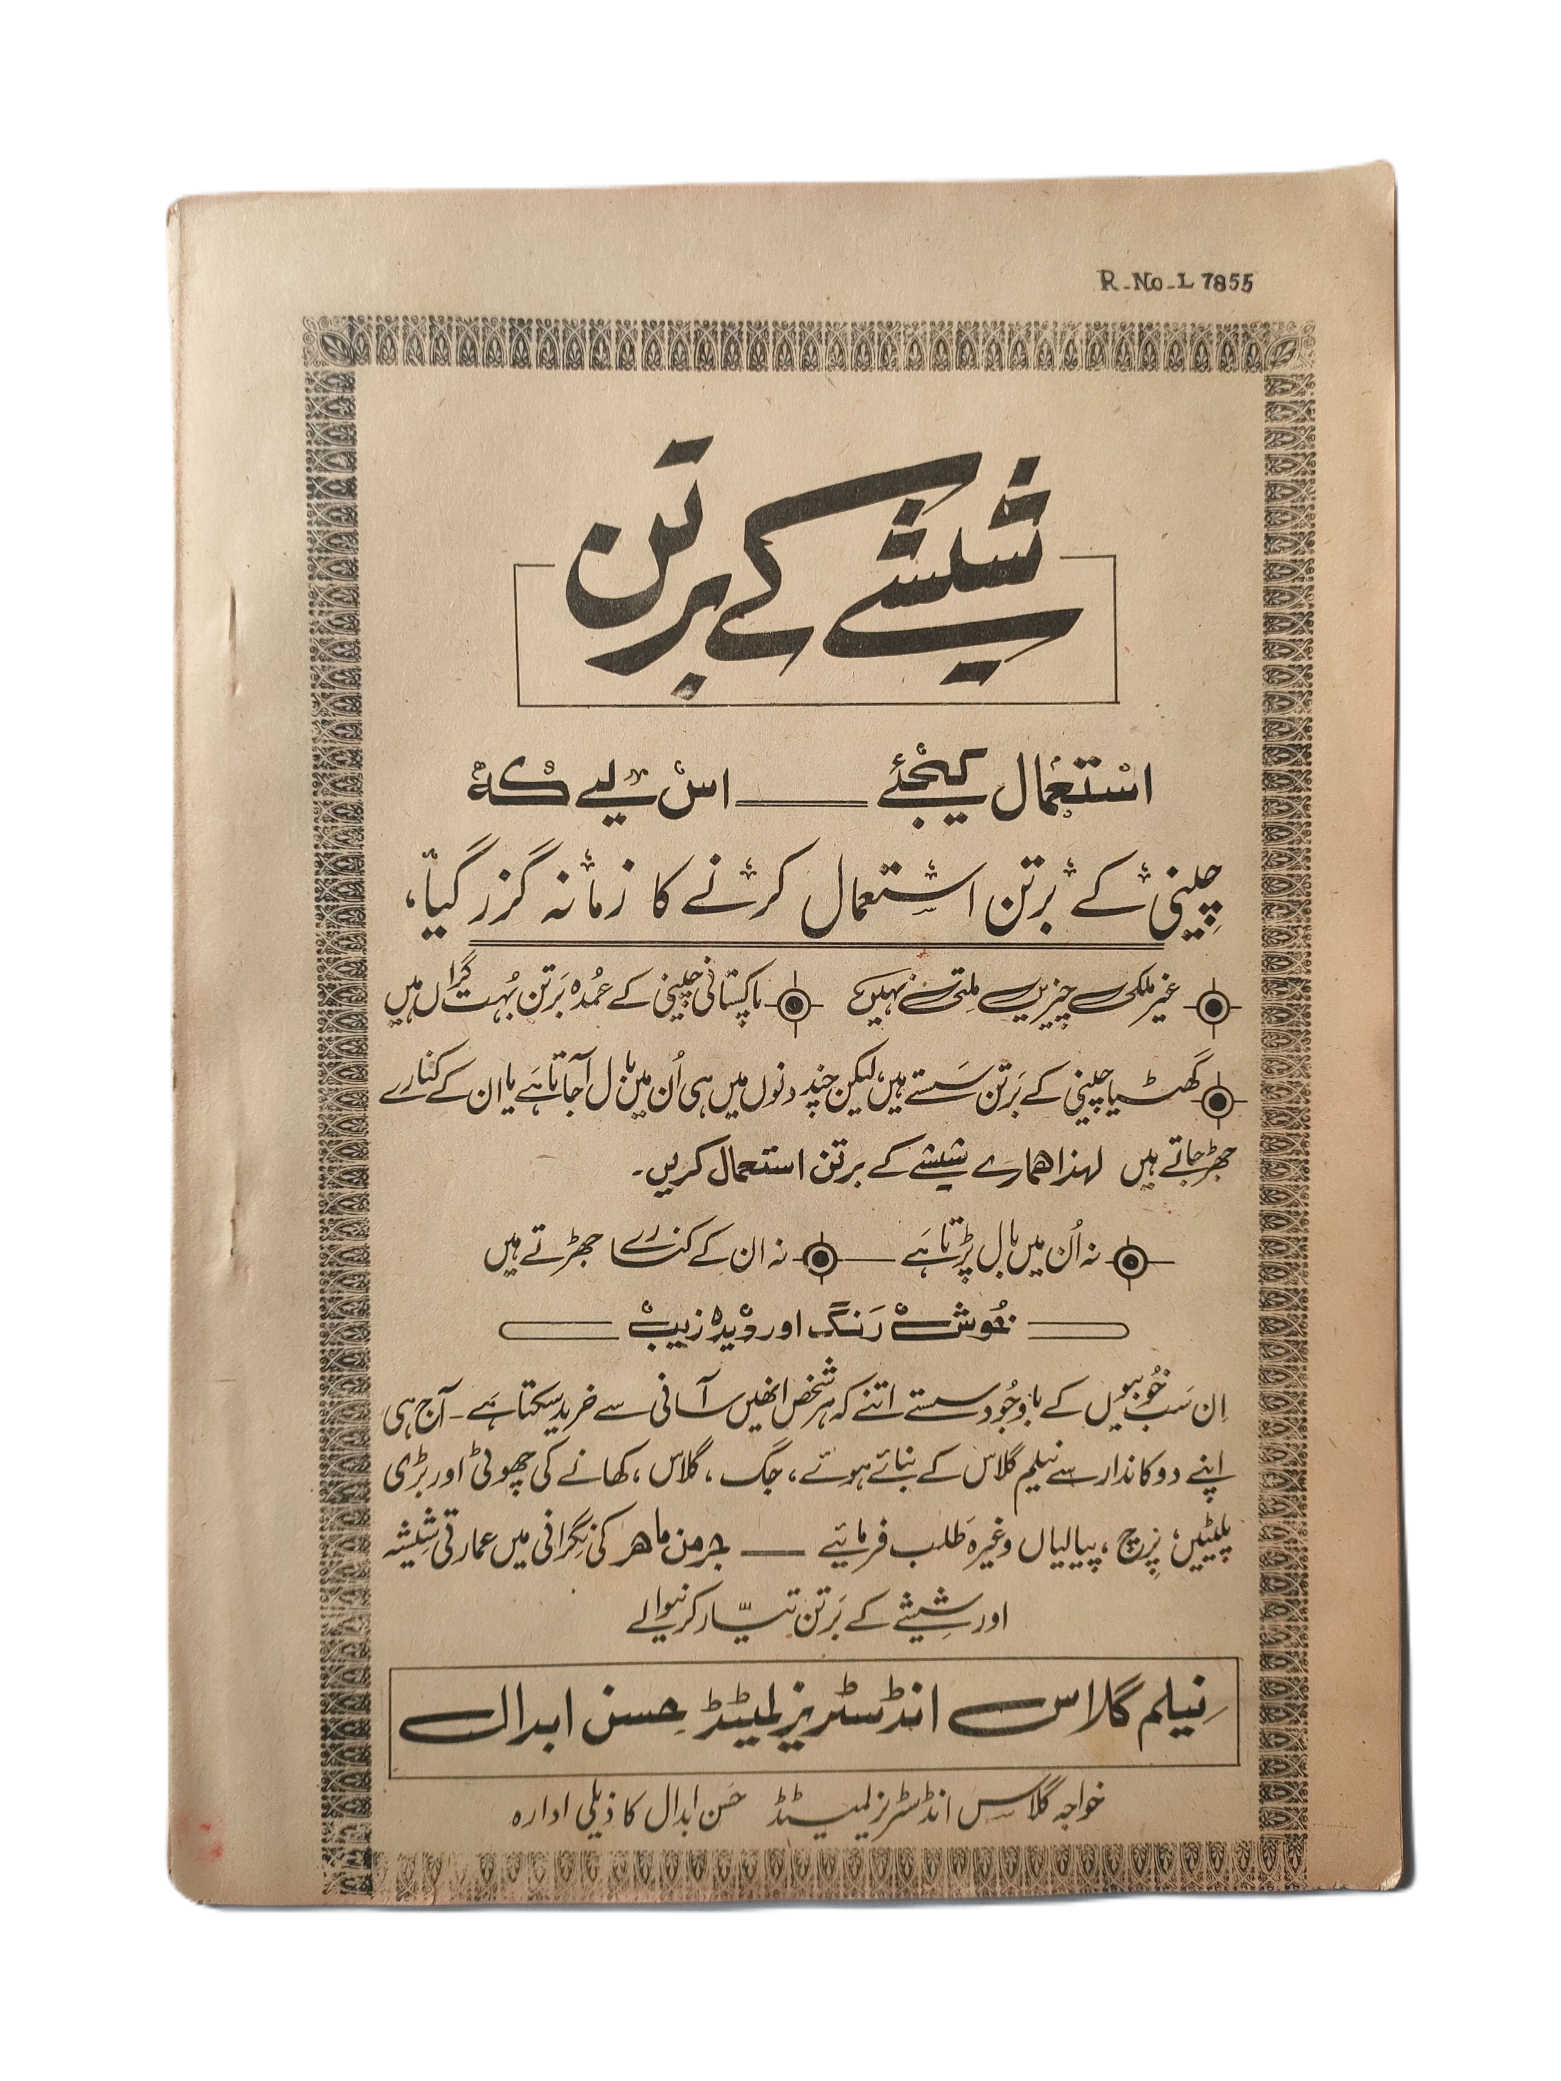 R-No-L 7855
شیشے کے برتن
استعمال کیجئے ــــــ اس لیے کہ
چینی کے برتن استعمال کرنے کا زمانہ گزر گیا،
غیر ملکی چیزیں ملتی نہیں پاکستانی چینی کے عُمدہ بَرتن بُہت گراں ہیں
گھٹیا چینی کے بَرتن سَستے ہیں، لیکن چند دنوں میں ہی اُن میں بال آجاتا ہَے یا ان کے کنارے
جھڑ جاتے ہیں لہذا ہمارے شیشے کے برتن استعمال کریں۔
نہ اُن میں بال پڑتا ہَے ــــــ نہ ان کے کنارے جھڑتے ہیں
خُوش رَنگ اور دیدہ زیب
اِن سَب خُوبیوں کے باوجُود سستے اتنے کہ ہر شخص انھیں آسانی سے خرید سکتا ہے۔ آج ہی
اپنے دوکاندار سے نیلم گلاس کے بنائے ہوئے، جگ، گلاس، کھانے کی چھوٹی اور بڑی
پلیٹیں، پرچ، پیالیاں وغیرہ طلب فرمائیے ــــــ جرمن ماہر کی نگرانی میں عمارتی شیشہ
اور شیشے کے بَرتن تیّار کرنیوالے
نیلم گلاس انڈسٹریز لمیٹڈ حسن ابدال
خواجہ گلاس انڈسٹریز لمیٹڈ حسن ابدال کا ذیلی ادارہ